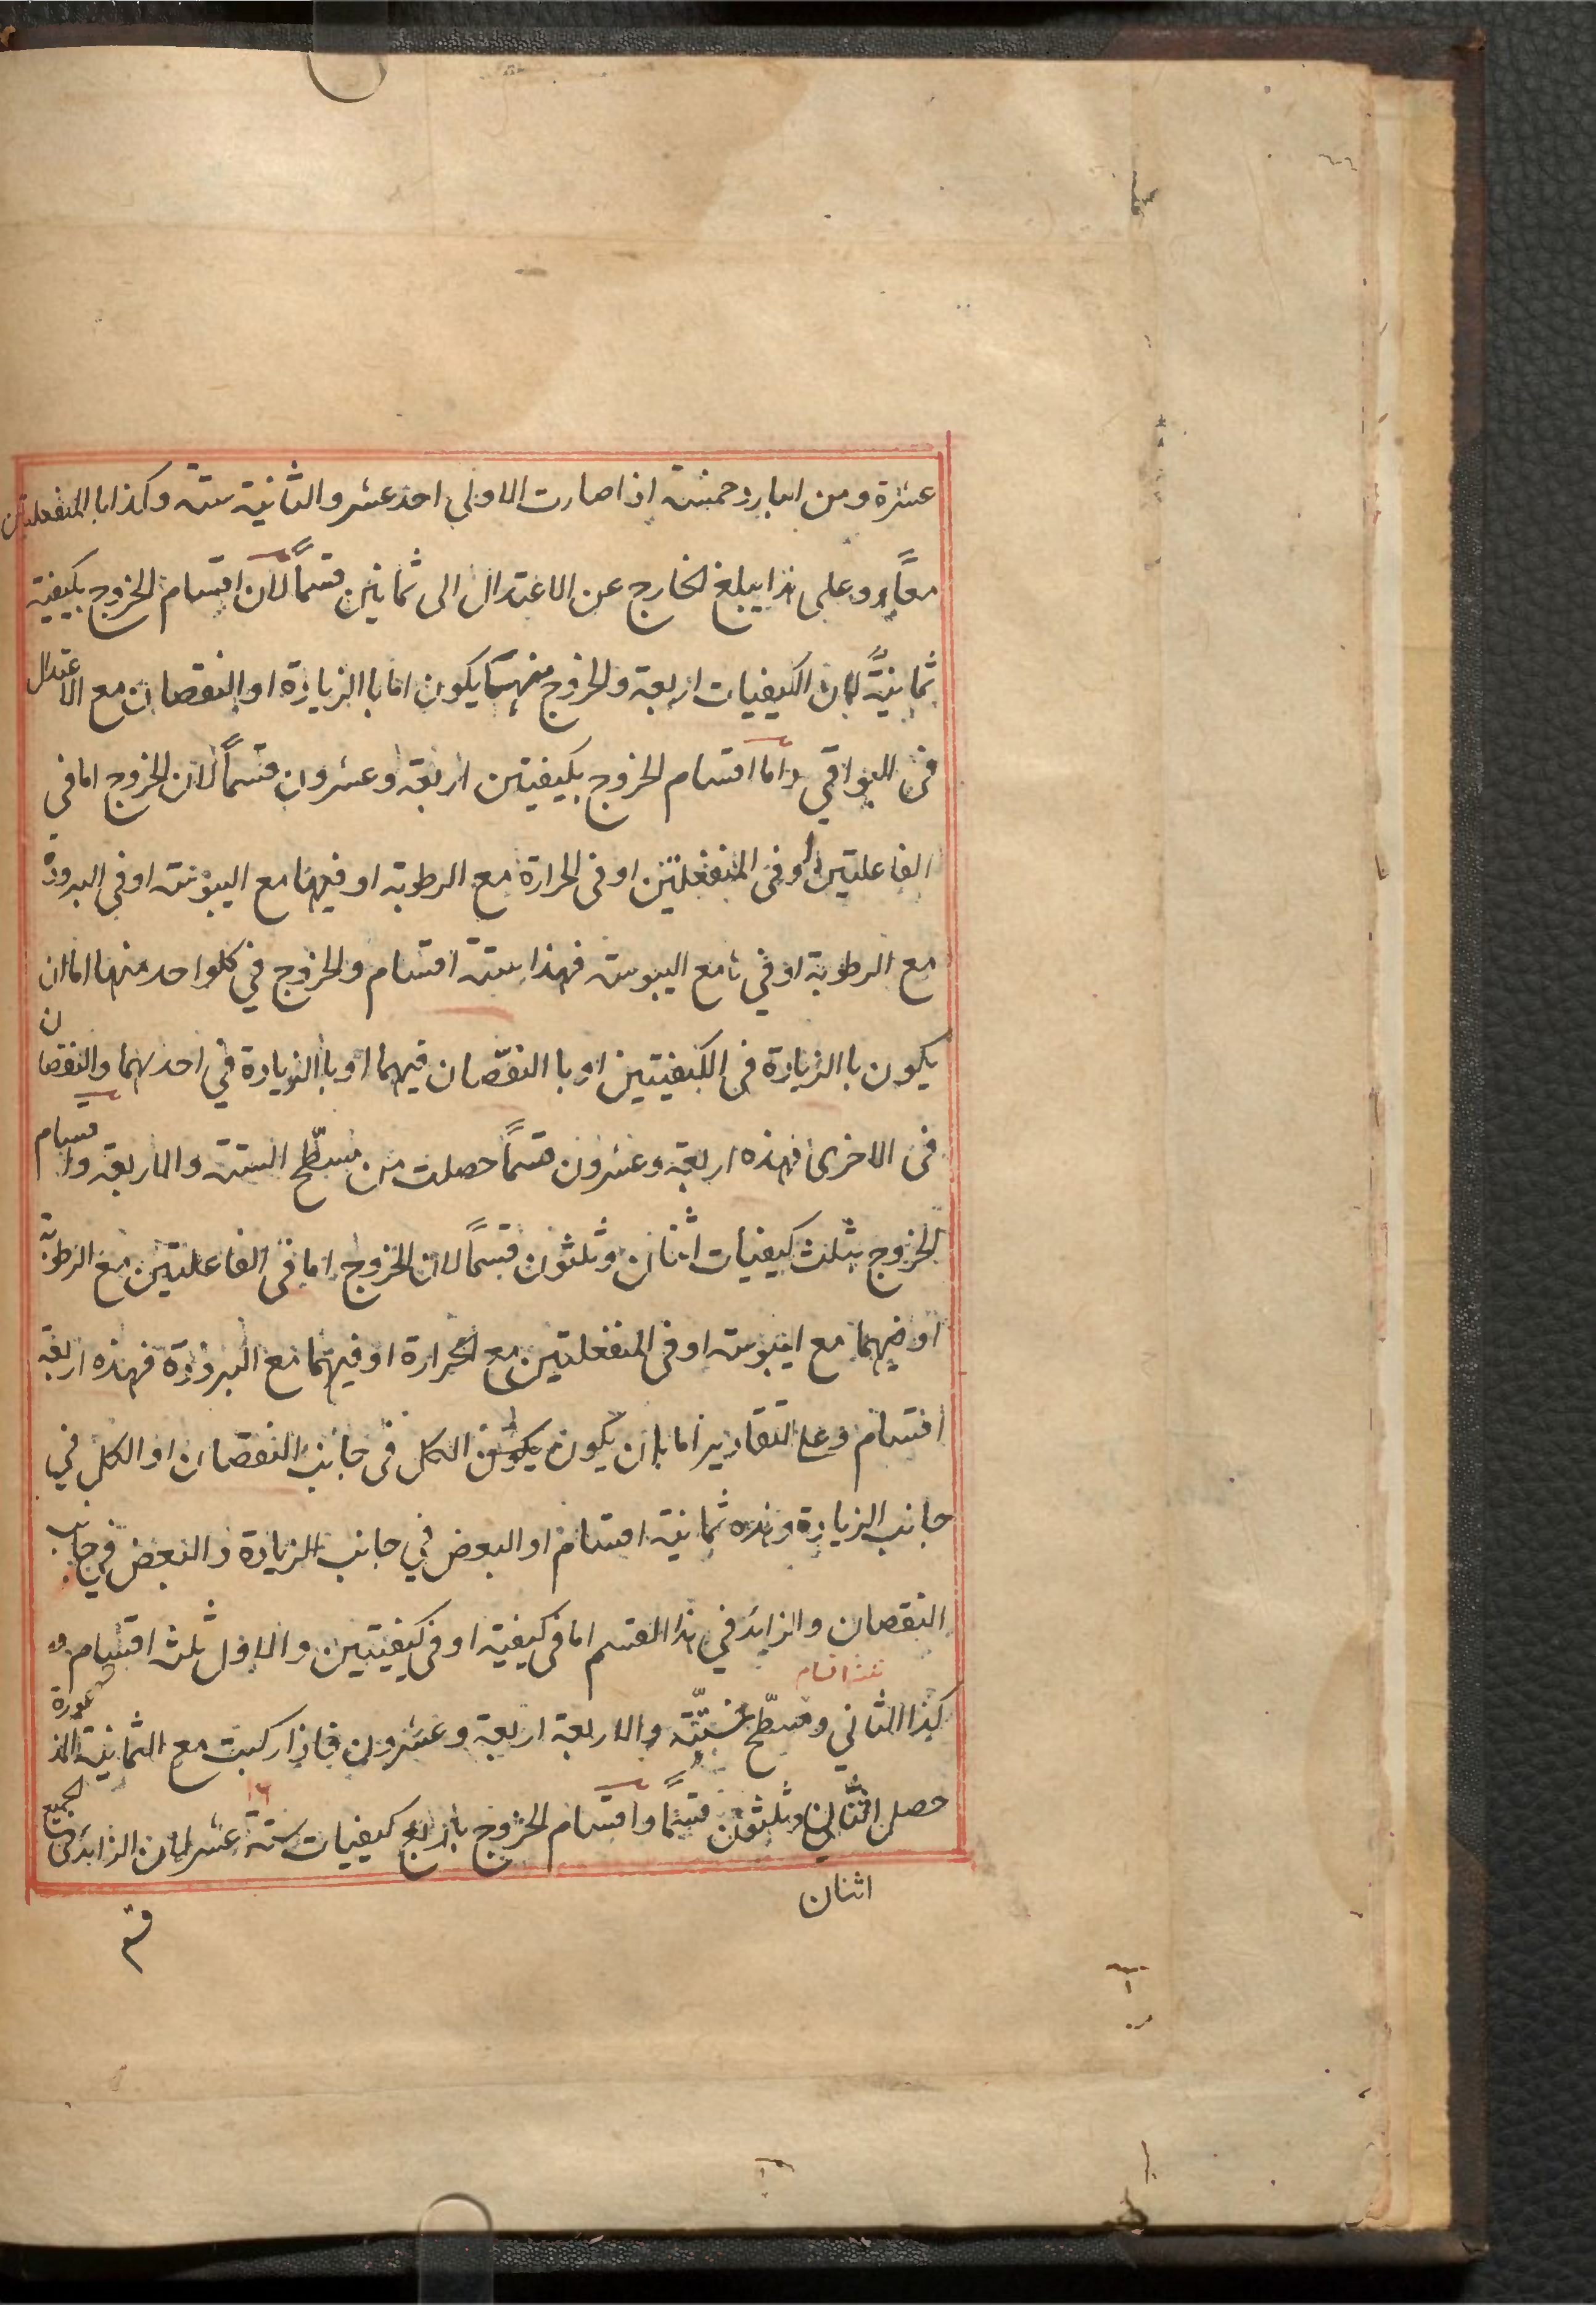 عشرة ومن البارد خمسة اذا صارت الاولى احد عشر والثانية ستة وكذا با المنفعلتين
معاً وعلى هذا يبلغ الخارج عن الاعتدال الى ثمانين قسماً لان اقسام الخروج بكيفية
ثمانيةً لان الكيفيات اربعة والخروج منهما يكون اما با الزيادة او النقصان مع الاعتدال
فى البواقي واما اقسام الخروج بكيفيتين اربعة وعشرون قسماً لان الخروج اما فى
الفاعلتين او فى المنفعلتين او فى الحرارة مع الرطوبة او فيها مع اليبوسة او فى البرودة
مع الرطوبة او فيها مع اليبوسة فهذا ستة اقسام والخروج في كلواحد منها اما ان
يكون با الزيادة فى الكيفيتين او با النقصان فيهما او با الزيادة في احدهما والنقصان
فى الاخرى فهذه اربعة وعشرون قسماً حصلت من مسطّح الستة والاربعة واقسام
الخروج بثلث كيفيات اثنان وثلثون قسماً لان الخروج اما فى الفاعلتين مع الرطوبة
او فيهما مع اليبوسة او فى المنفعلتين مع الحرارة او فيهما مع البرودة فهذه اربعة
اقسام وعلى التقادير اما بان يكون يكون الكل فى جانب النقصان او الكل في
جانب الزيادة وهذه ثمانية اقسام او البعض في جانب الزيادة والبعض في جانب
النقصان والزايد في هذا القسم اما فى كيفية او فى كيفيتين والاول ثلث اقسام و
ثلثة اقسام
كذا الثاني ومسطّح ستّة والاربعة اربعة وعشرون فاذا ركبت مع الثمانية المذكورة
حصل اثنان وثلثون قسماً واقسام الخروج باربع كيفيات ستة عشر لان الزايد فى الجميع
١٦
اثنان
قسم